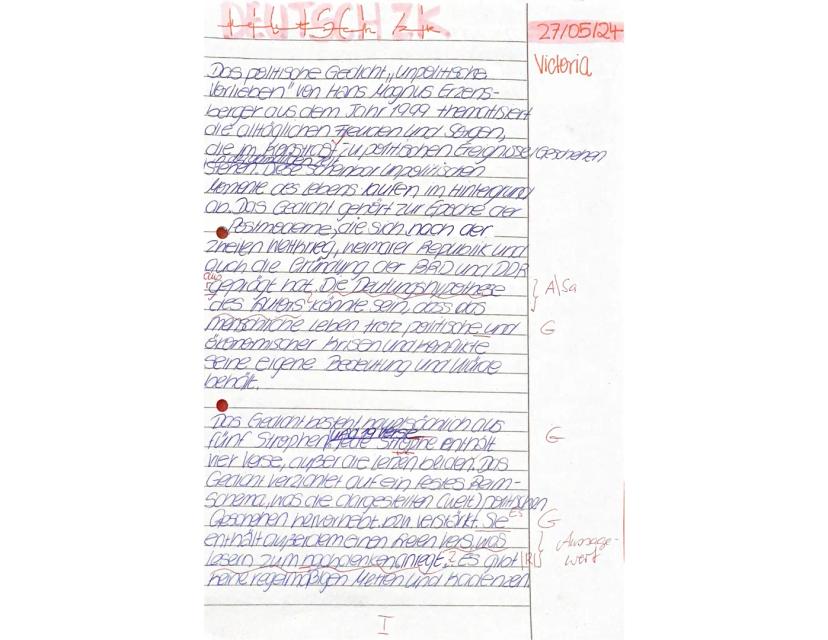 DEUTSCH ZK
27/05/24
Victoria
Das politische Gedicht „unpolitische
Vorlieben" von Hans Magnus Enzens-
berger aus dem Jahr 1999 thematisiert
die alltäglichen Freuden und Sorgen,
die im Kontrast zu politischen Ereignisse/Geschehen
in der damaligen Zeit
stehen. Diese scheinbar unpolitischen
Momente des Lebens laufen im Hintergrund
ab. Das Gedicht gehört zur Epoche der
Postmoderne, die sich nach der
zweiten Weltkrieg, Weimarer Republik und
auch die Gründung der BRD und DDR
geprägt hat. Die Deutungshypothese
A\Sa
des Autors könnte sein, dass das
menschliche Leben trotz politische und
G
ökonomischer Krisen und Konflikte
seine eigene Bedeutung und Würde
behält.
Das Gedicht besteht hauptsächlich aus
fünf Strophen und 19 Verse jede Strophe enthält
G
vier Verse, außer die letzen beiden. Das
Gedicht verzichtet auf ein festes Reim-
schema, was die dargestellten (welt) politischen
Geschehen hervorhebt bzw verstärkt. Sie
Es
G
enthält außerdem einen freien Vers, was
Aussage-
wert
lesern zum nachdenken anregt. Es gibt
R
keine regelmäßigen Metren und Kadenzen
I